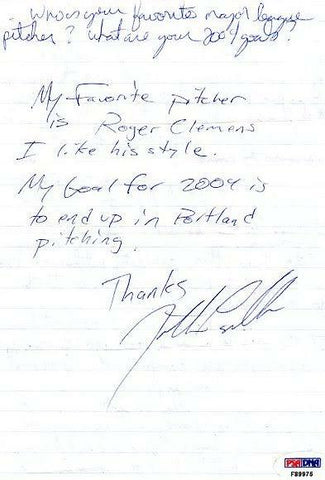 Who is your favorite major league
pitcher? What are your 2004 goals?
My Favorite pitcher
is Roger Clemens
I like his style.
My Goal for 2004 is
to end up in Portland
pitching.
Thanks
PSA DNA
F89975